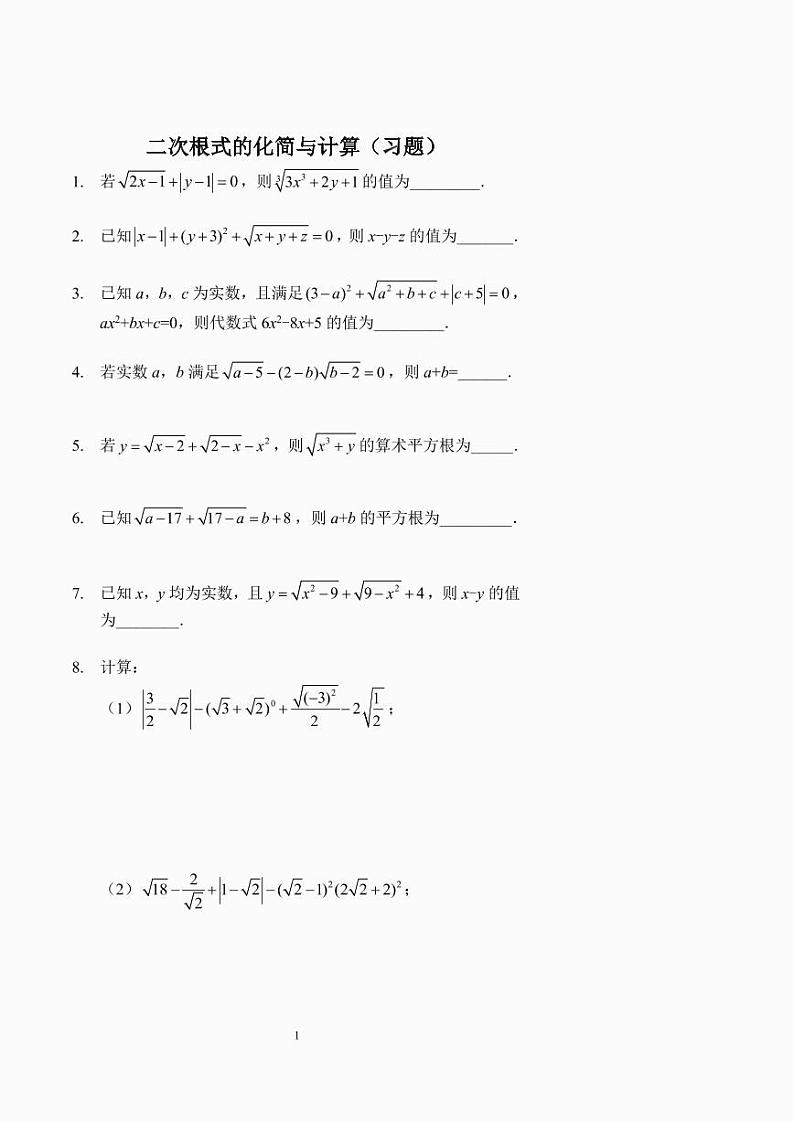 二次根式的化简与计算（习题）
1. 若√(2x−1)+|y−1|=0，则∛(3x³+2y+1)的值为_________.
2. 已知|x−1|+(y+3)²+√(x+y+z)=0，则 x−y−z 的值为_______.
3. 已知 a，b，c 为实数，且满足(3−a)²+√(a²+b+c)+|c+5|=0，
ax²+bx+c=0，则代数式 6x²−8x+5 的值为_________.
4. 若实数 a，b 满足√(a−5)−(2−b)√(b−2)=0，则 a+b=______.
5. 若 y=√(x−2)+√(2−x)−x²，则√(x³+y)的算术平方根为_____.
6. 已知√(a−17)+√(17−a)=b+8，则 a+b 的平方根为_________.
7. 已知 x，y 均为实数，且 y=√(x²−9)+√(9−x²)+4，则 x−y 的值
为________.
8. 计算：
（1）|3/2−√2|−(√3+√2)⁰+√((−3)²)/2−2√(1/2)；
（2）√18−2/√2+|1−√2|−(√2−1)²(2√2+2)²；
1